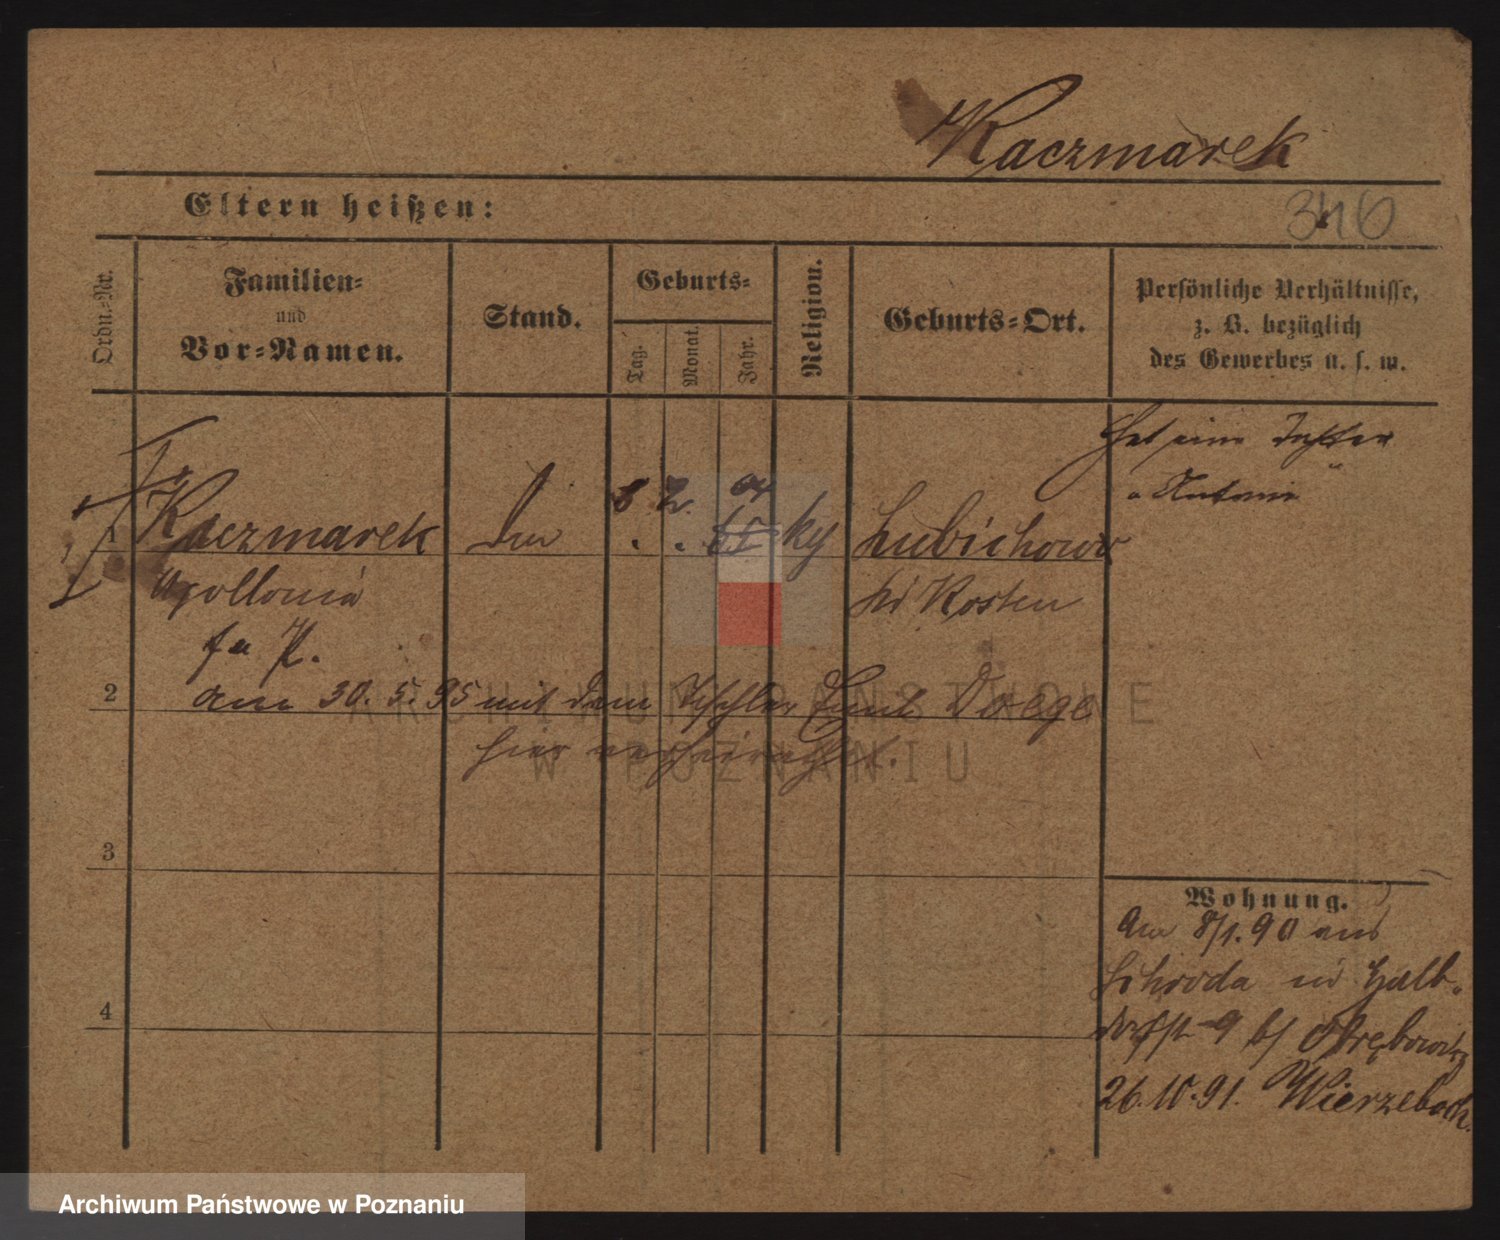 Kaczmarek
Eltern heißen:
346
Ordn.-Nr.
Familien-
und
Vor-Namen.
Stand.
Geburts-
Tag.
Monat.
Jahr.
Religion.
Geburts-Ort.
Persönliche Verhältnisse,
z. B. bezüglich
des Gewerbes u. s. w.
Hat eine
1 Kaczmarek 8 2. 64 ky Lubichowo
Apollonia bei Kosten
2 am 30. 5. 95 mit dem Tischler Emil Doege
hier verheirathet.
3
4
Wohnung.
Am 8/1. 90 aus
Schroda in Halb-
dorfst 9 b/
26.10.91.
ARCHIWUM PAŃSTWOWE
W POZNANIU
Archiwum Państwowe w Poznaniu